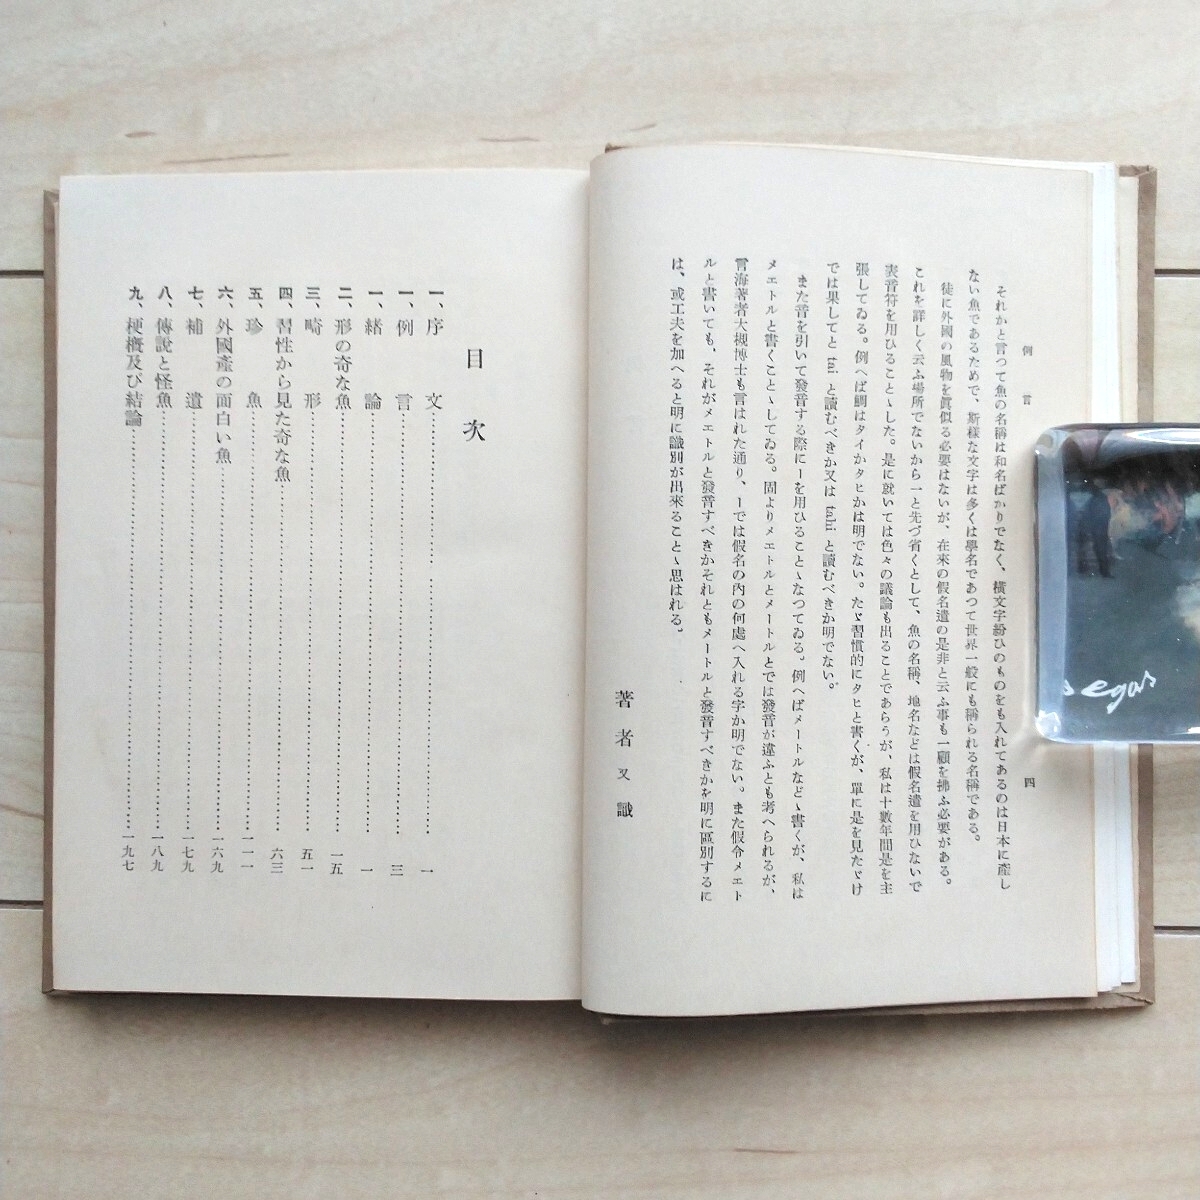 例言
四
それかと言つて魚の名稱は和名ばかりでなく、横文字紛ひのものをも入れてあるのは日本に產し
ない魚であるためで、斯樣な文字は多くは學名であつて世界一般にも稱られる名稱である。
徒に外國の風物を眞似る必要はないが、在來の假名遣の是非と云ふ事も一顧を拂ふ必要がある。
これを詳しく云ふ場所でないから一と先づ省くとして、魚の名稱、地名などは假名遣を用ひないで
表音符を用ひることゝした。是に就いては色々の議論も出ることであらうが、私は十數年間是を主
張してゐる。例へば鯛はタイかタヒかは明でない。たゞ習慣的にタヒと書くが、單に是を見たゞけ
では果してと tai と讀むべきか又は tahi と讀むべきか明でない。
また音を引いて發音する際にーを用ひることゝなつてゐる。例へばメートルなどゝ書くが、私は
メエトルと書くことゝしてゐる。固よりメエトルとメートルとでは發音が違ふとも考へられるが、
言海著者大槻博士も言はれた通り、ーでは假名の內の何處へ入れる字か明でない。また假令メエト
ルと書いても、それがメエトルと發音すべきかそれともメートルと發音すべきかを明に區別するに
は、或工夫を加へると明に識別が出來ることゝ思はれる。
著者又識
目次
一、序文……一
一、例言……三
一、緖論……一
二、形の奇な魚……一五
三、畸形……五一
四、習性から見た奇な魚……六三
五、珍魚……一二一
六、外國產の面白い魚……一六九
七、補遺……一七九
八、傳說と怪魚……一八九
九、梗槪及び結論……一九七
egas